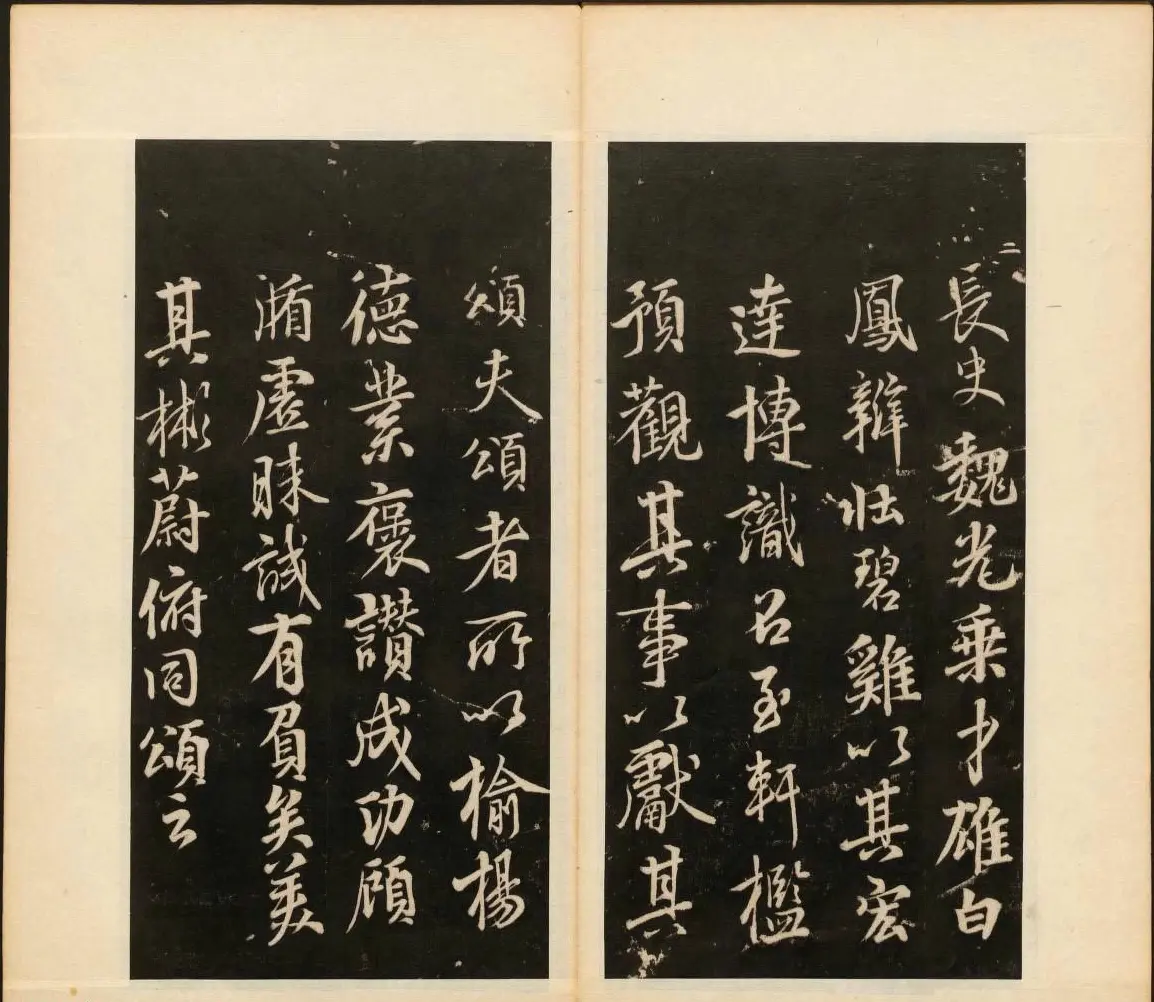 長史魏光乘才雄白
鳳辯壯碧雞以其宏
達博識召至軒檻
預觀其事以獻其
頌夫頌者所以榆楊
德業襃讃成功顧
循虛昧誠有負矣美
其彬蔚俯同頌云